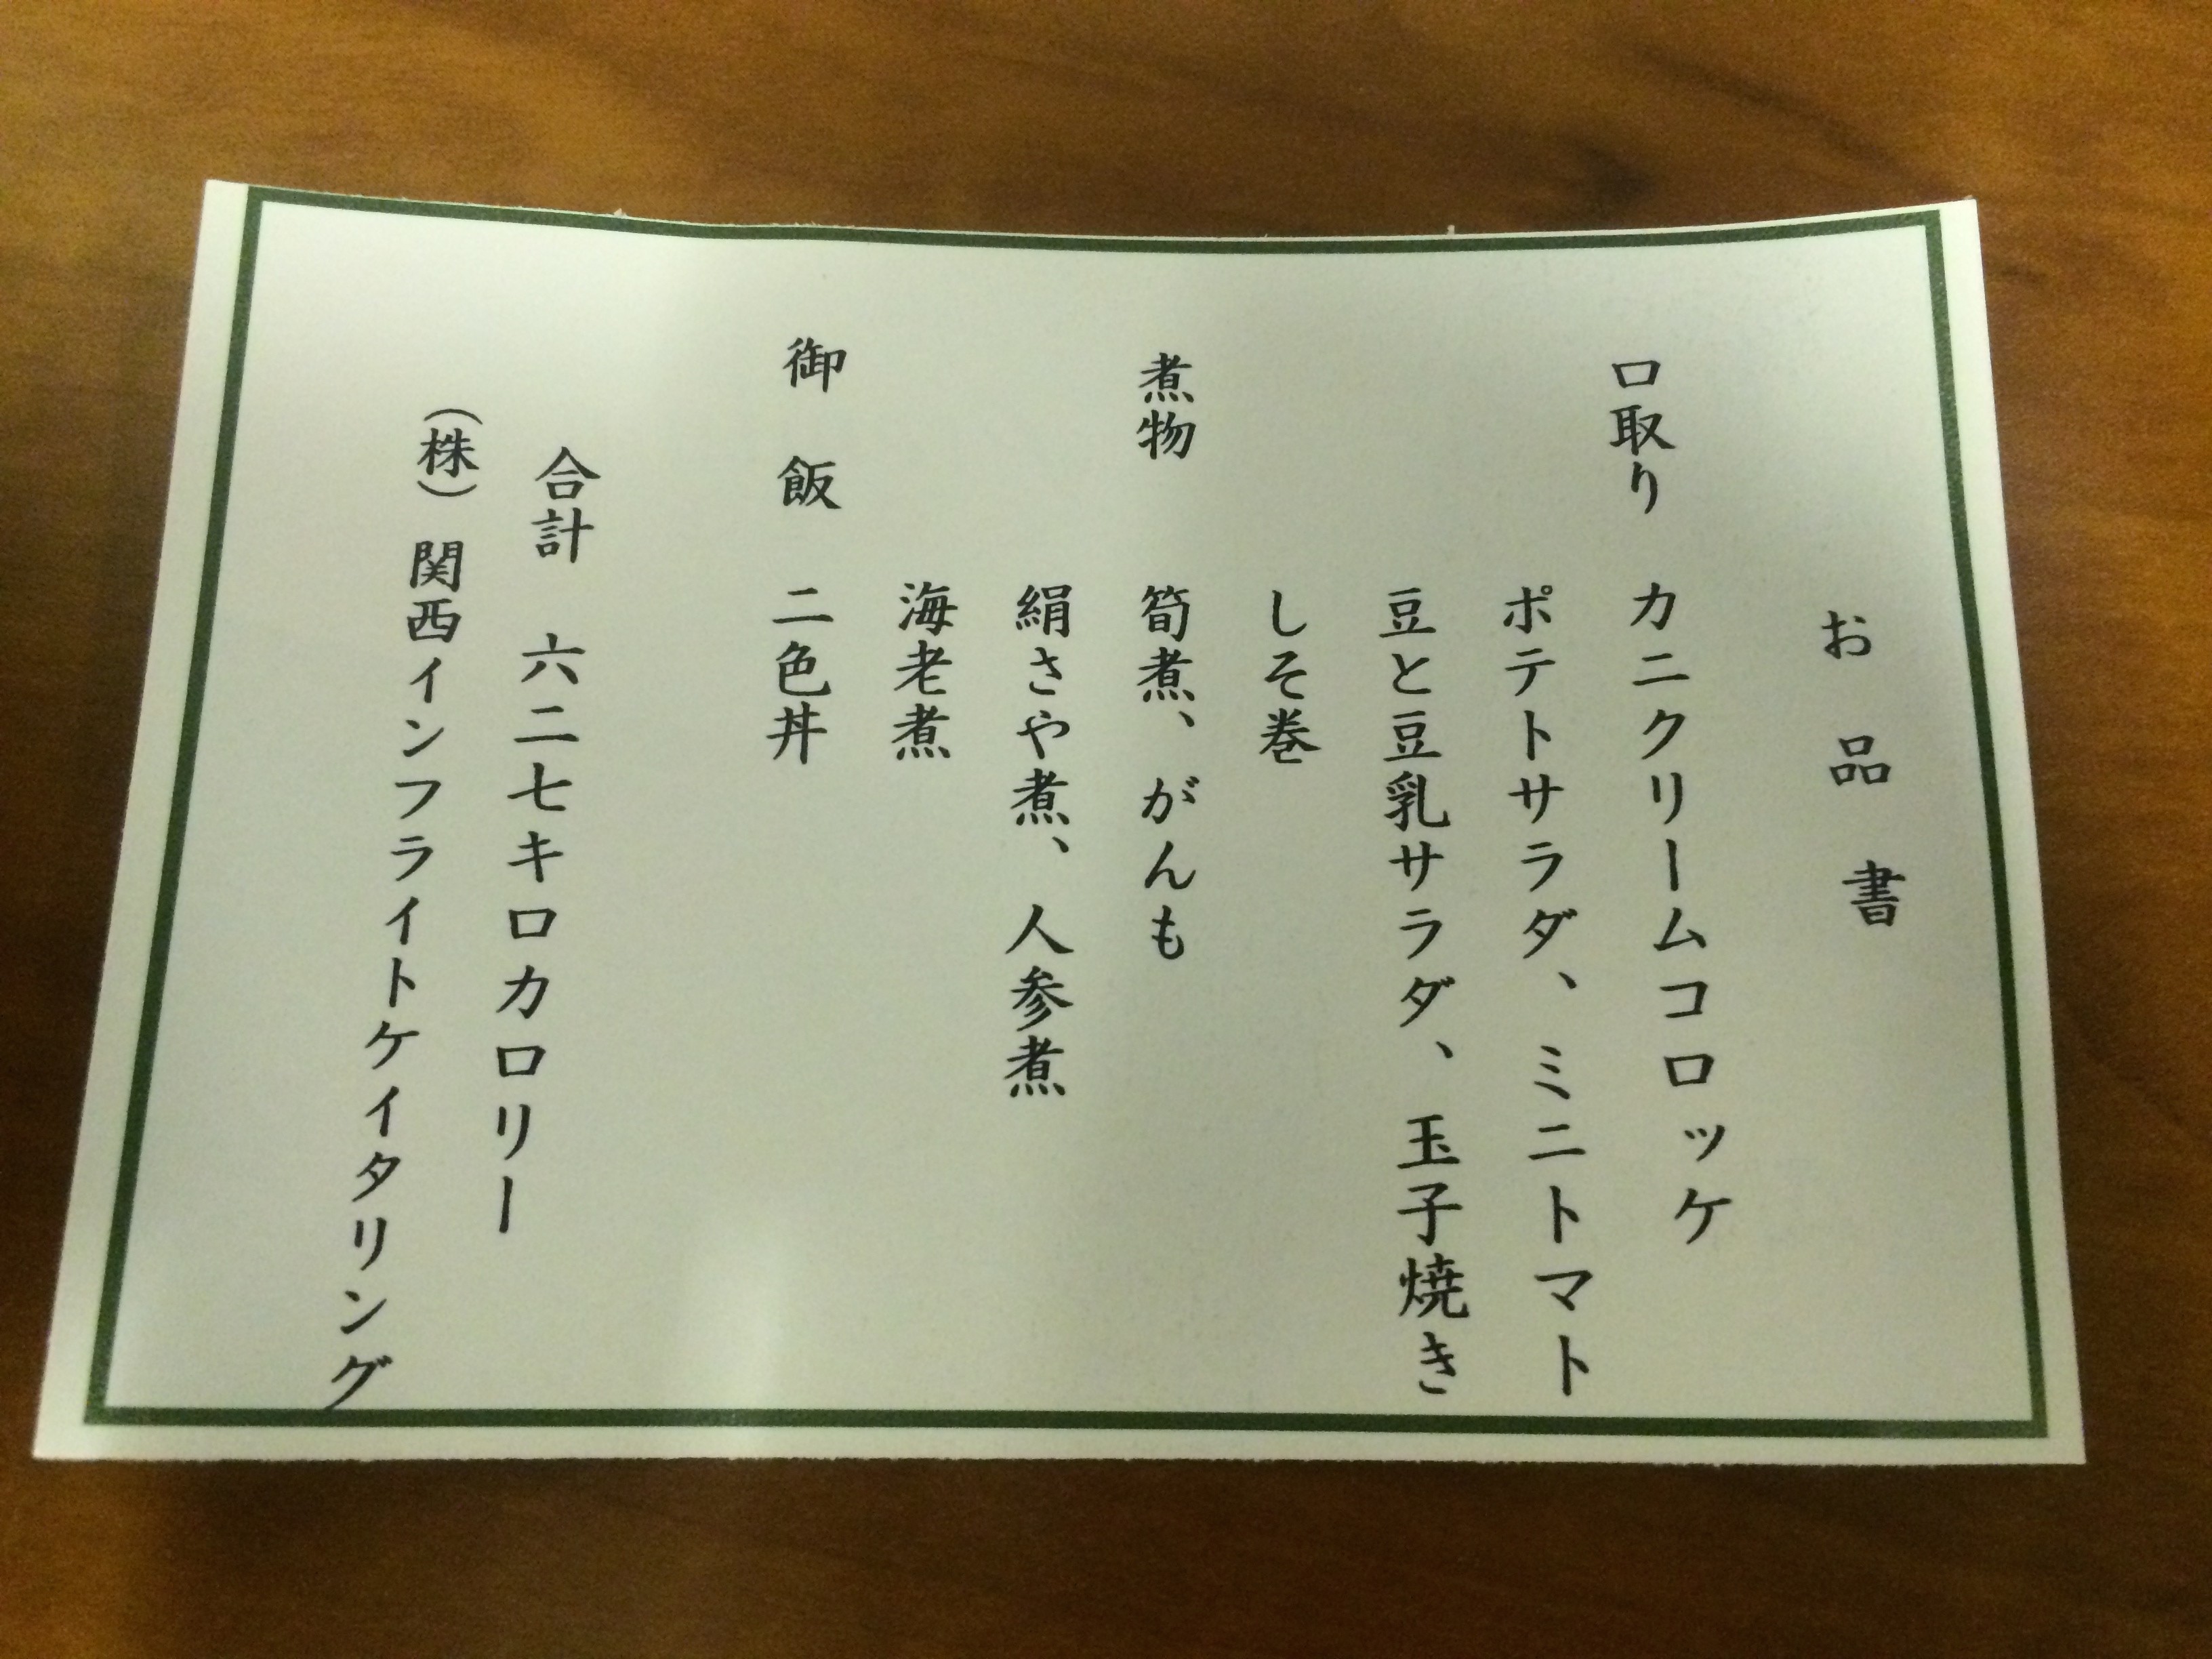 お品書
口取り　カニクリームコロッケ
ポテトサラダ、ミニトマト
豆と豆乳サラダ、玉子焼き
しそ巻
煮物　筍煮、がんも
絹さや煮、人参煮
海老煮
御飯　二色丼
合計　六二七キロカロリー
（株）関西インフライトケイタリング